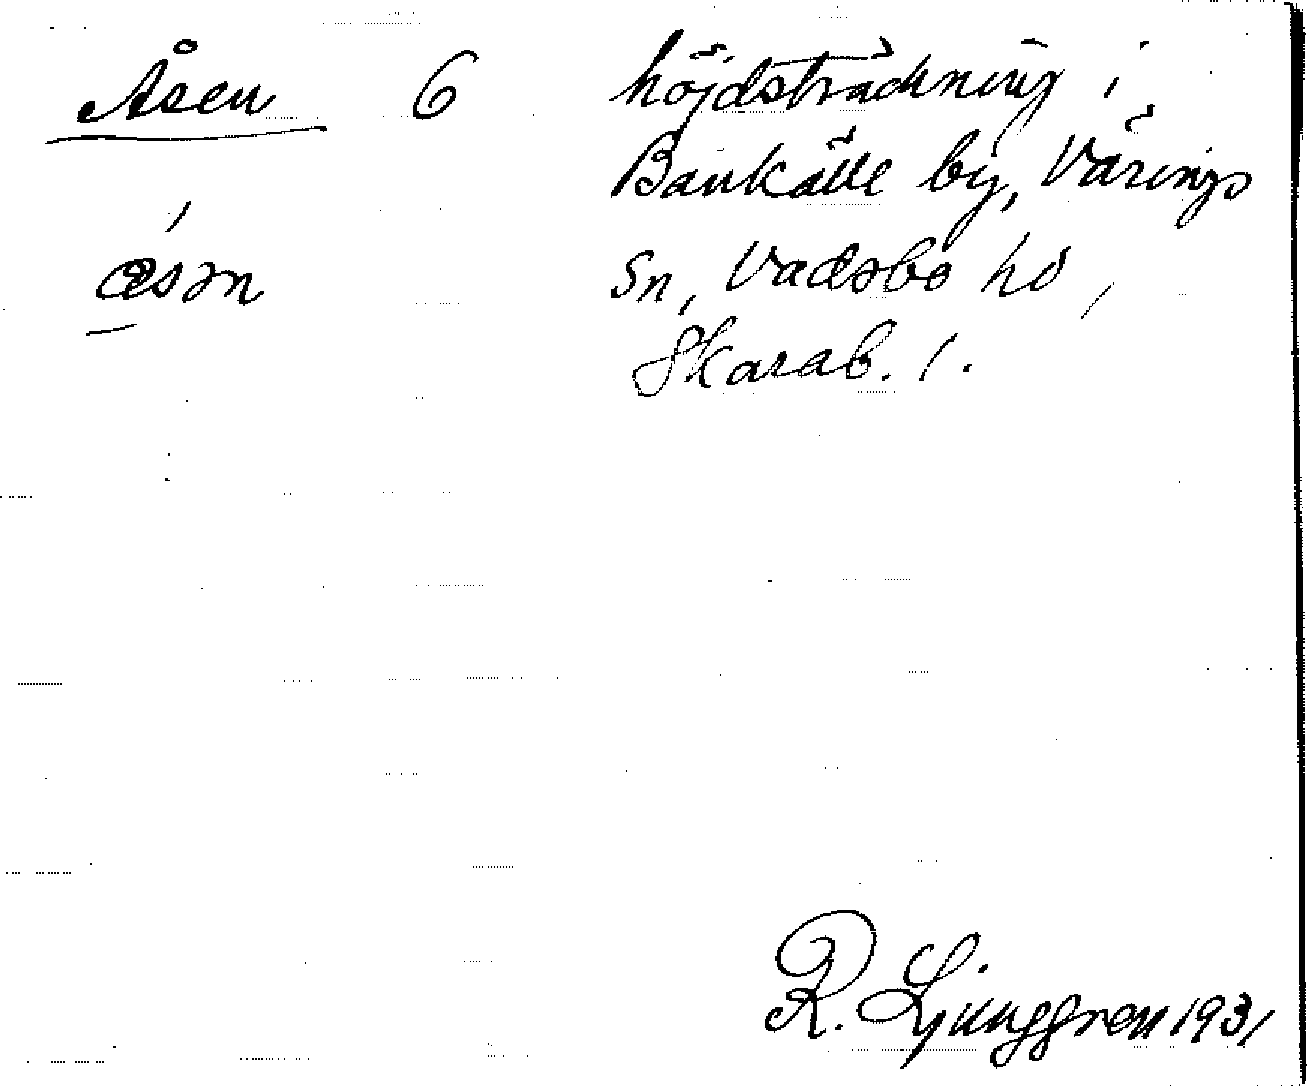 Åsen 6 höjdsträckning i
Bankälle by, Värings
åsən Sn, Vadsbo hd,
Skarab. l.
R. Ljunggren 1931